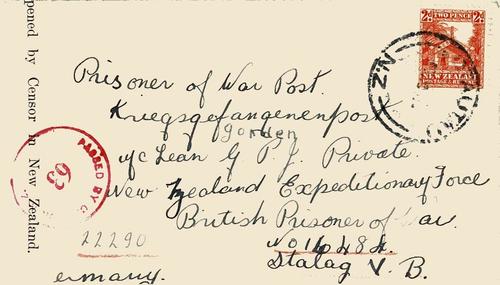 pened by Censor in New Zealand.
2½D TWO PENCE 2½D
NEW ZEALAND
POSTAGE & REVENUE
N.Z
Prisoner of War Post.
Kriegsgefangenenpost
gorden
Mc Lean G P. J. Private.
New Zealand Expeditionary Force
British Prisoner of War.
PASSED BY C
63
22290
No 16484.
Stalag V. B.
ermany.